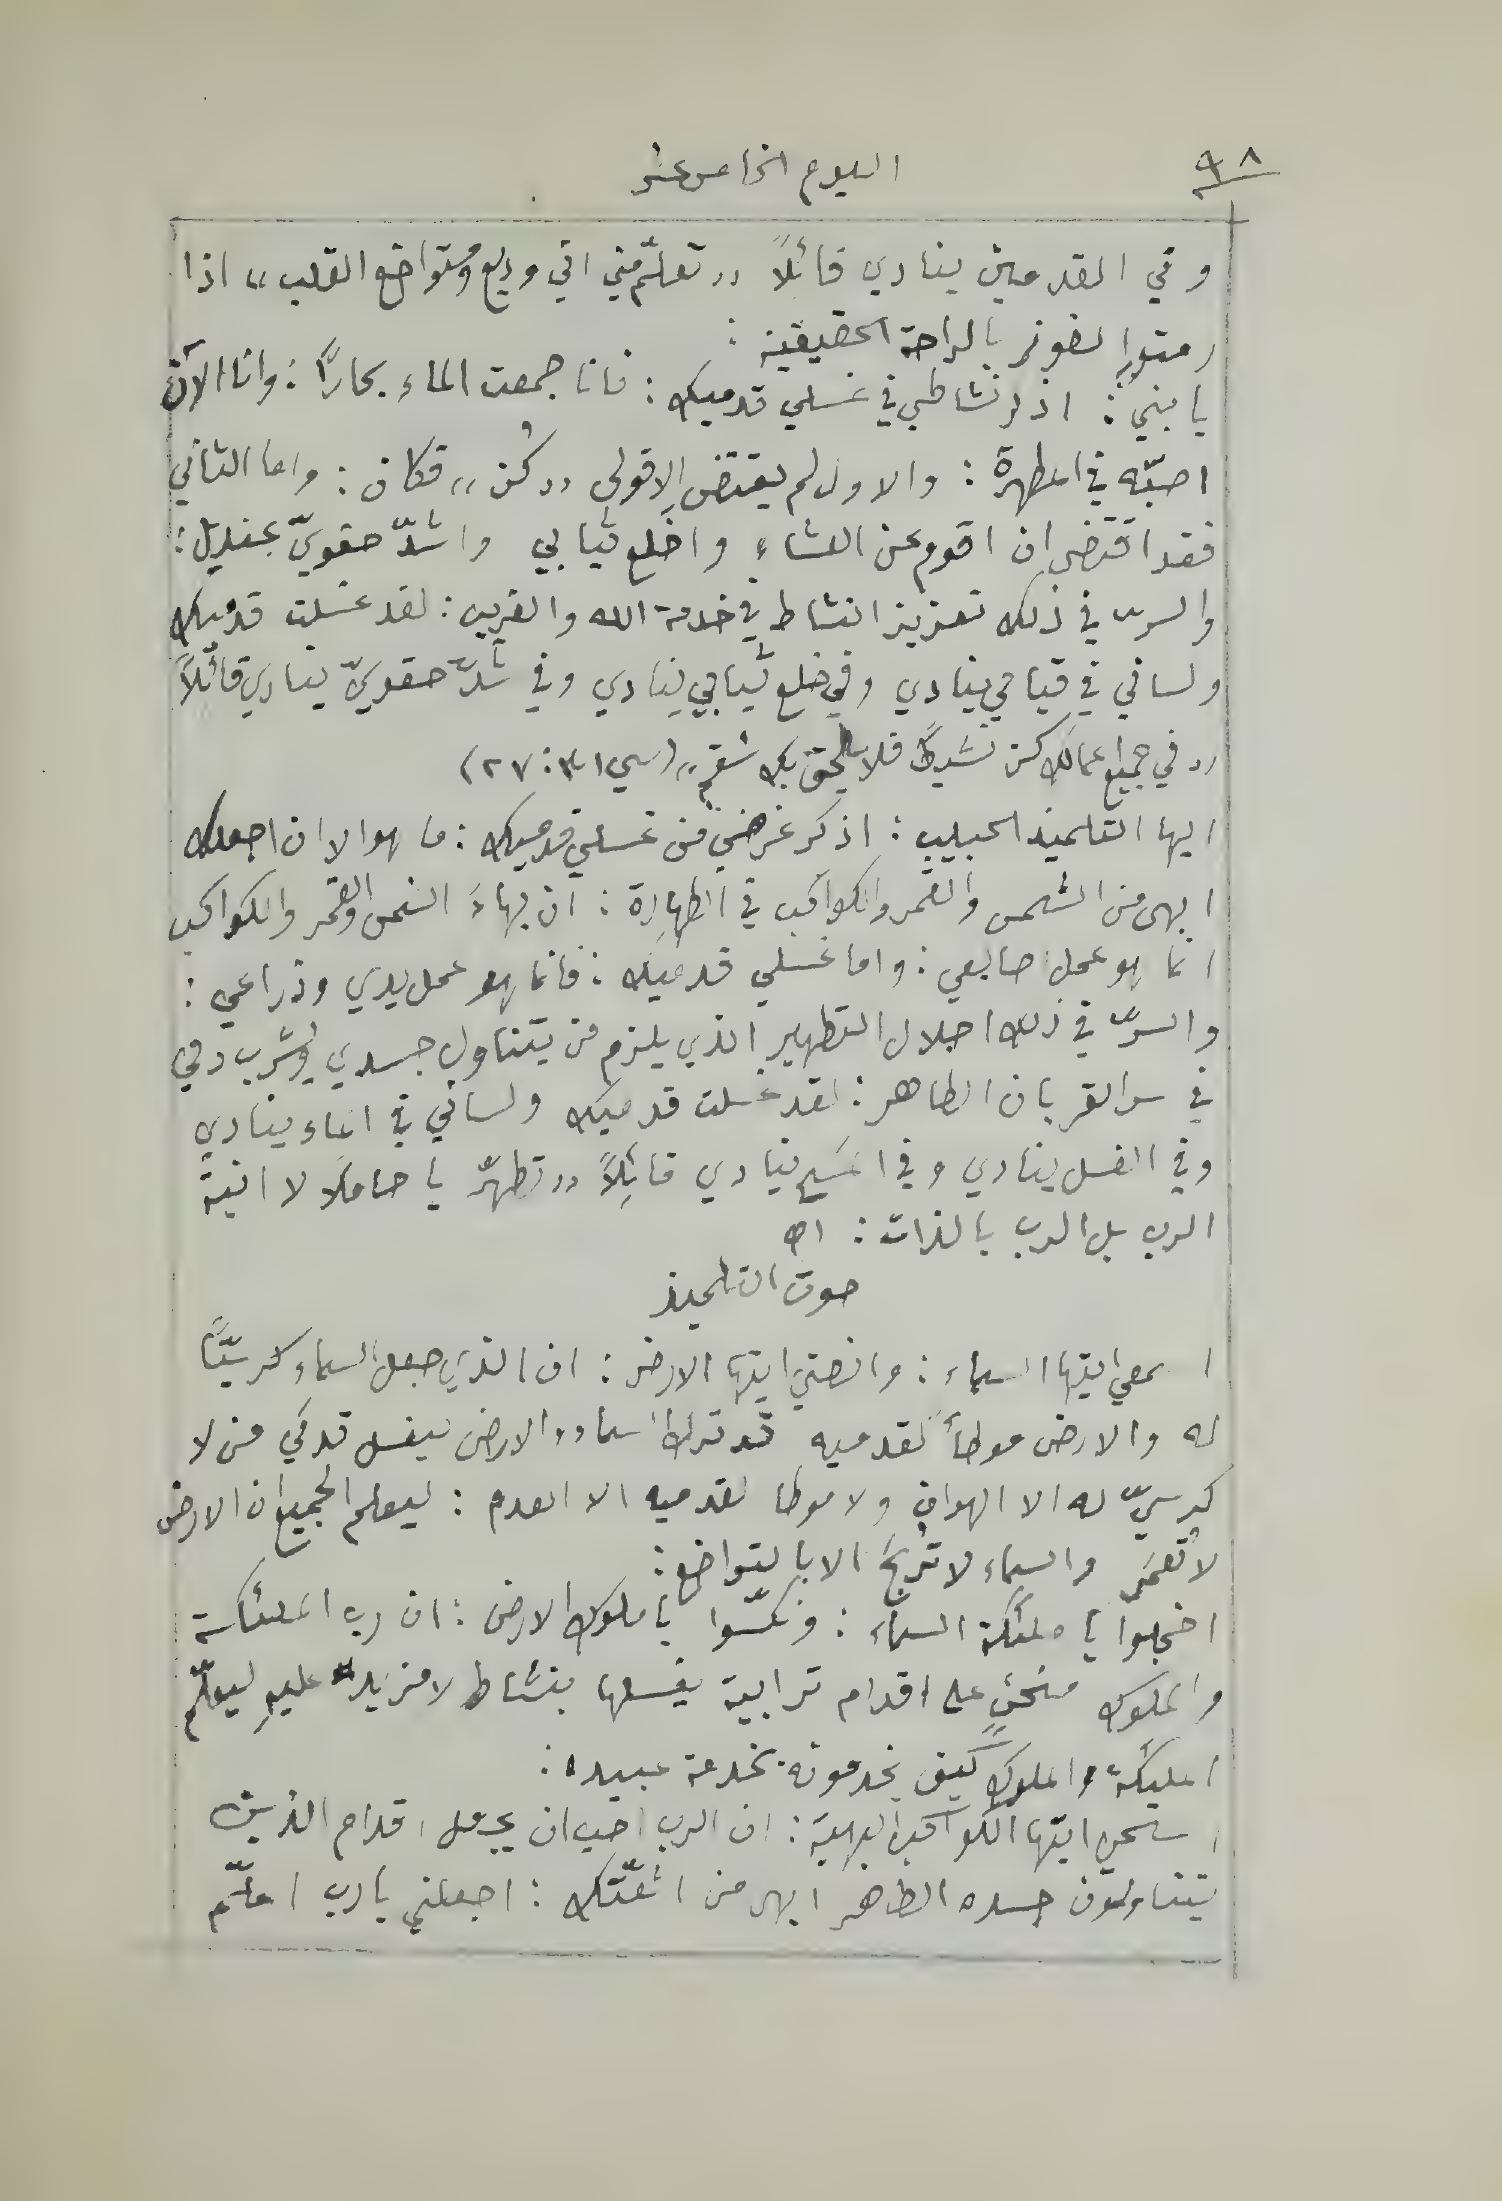 ٩٨
اليوم الخامس عشر
وفي القدمين ينادي قائلاً ,, تعلّم مني اني وديع ومتواضع القلب ,, اذا
رمتوا لفوز بالراحة الحقيقية :
يا بني : اذكر نشاطي في غسلي قدميك : فانا جمعت الماء بحارًا : وانا الآن
اصبّه في المطهرة : والاول لم يقتضِ الا قولي ,, كُن ,, فكان : واما الثاني
فقد اقتضى ان اقوم عن العشاء واخلع ثيابي واشدّ حقويّ بمنديل :
والسرّ في ذلك تعزيز النشاط في خدمة الله والقريب : لقد غسلت قدميك
ولساني في قيامي ينادي وفي خلع ثيابي ينادي وفي شدّ حقويّ ينادي قائلاً
,, في جميع اعمالك كن نشيطًا فلا يلحق بك سقم ,, (سي ٣١ : ٢٧)
ايها التلميذ الحبيب : اذكر غرضي من غسلي قدميك : ما هو الا ان اجعلك
ابهى من الشمس والقمر والكواكب في الطهارة : ان بهاءَ الشمس والقمر والكواكب
انما هو عمل اصابعي : واما غسلي قدميك : فانما هو عمل يدي وذراعي :
والسرّ في ذلك اجلال التطهير الذي يلزم من يتناول جسدي ويشرب دمي
في سر القربان الطاهر : لقد غسلت قدميك ولساني في الماء ينادي
وفي الغسل ينادي وفي المسيح ينادي قائلاً ,, تطهّر يا حاملاً لا انية
الرب بل الرب بالذات : اه
صوت التلميذ
اسمعي ايتها السماء : وانصتي ايتها الارض : ان الذي جعل السماء كرسيًّا
له والارض موطأً لقدميه قد ترك السماء والارض ليغسل قدمي من لا
كرسيّ له الا الهوان ولا موطا لقدميه الا العدم : ليعلم الجميع ان الارض
لا تُعمَر والسماء لا تُربَح الا بالتواضع :
اخجلوا يا ملئكة السماء : ونكّسوا يا ملوك الارض : ان رب الملئكة
والملوك منحنٍ على اقدام ترابية يغسلها بنشاط لا مزيد عليهِ ليعلّم
المليكة والملوك كيف يخدمونه بخدمة عبيده :
استحي ايتها الكواكب البهية : ان الرب احب ان يجعل اقدام الذين
يتناولون جسده الطاهر ابهى من اشعّتك : اجعلني يا رب اعلّم